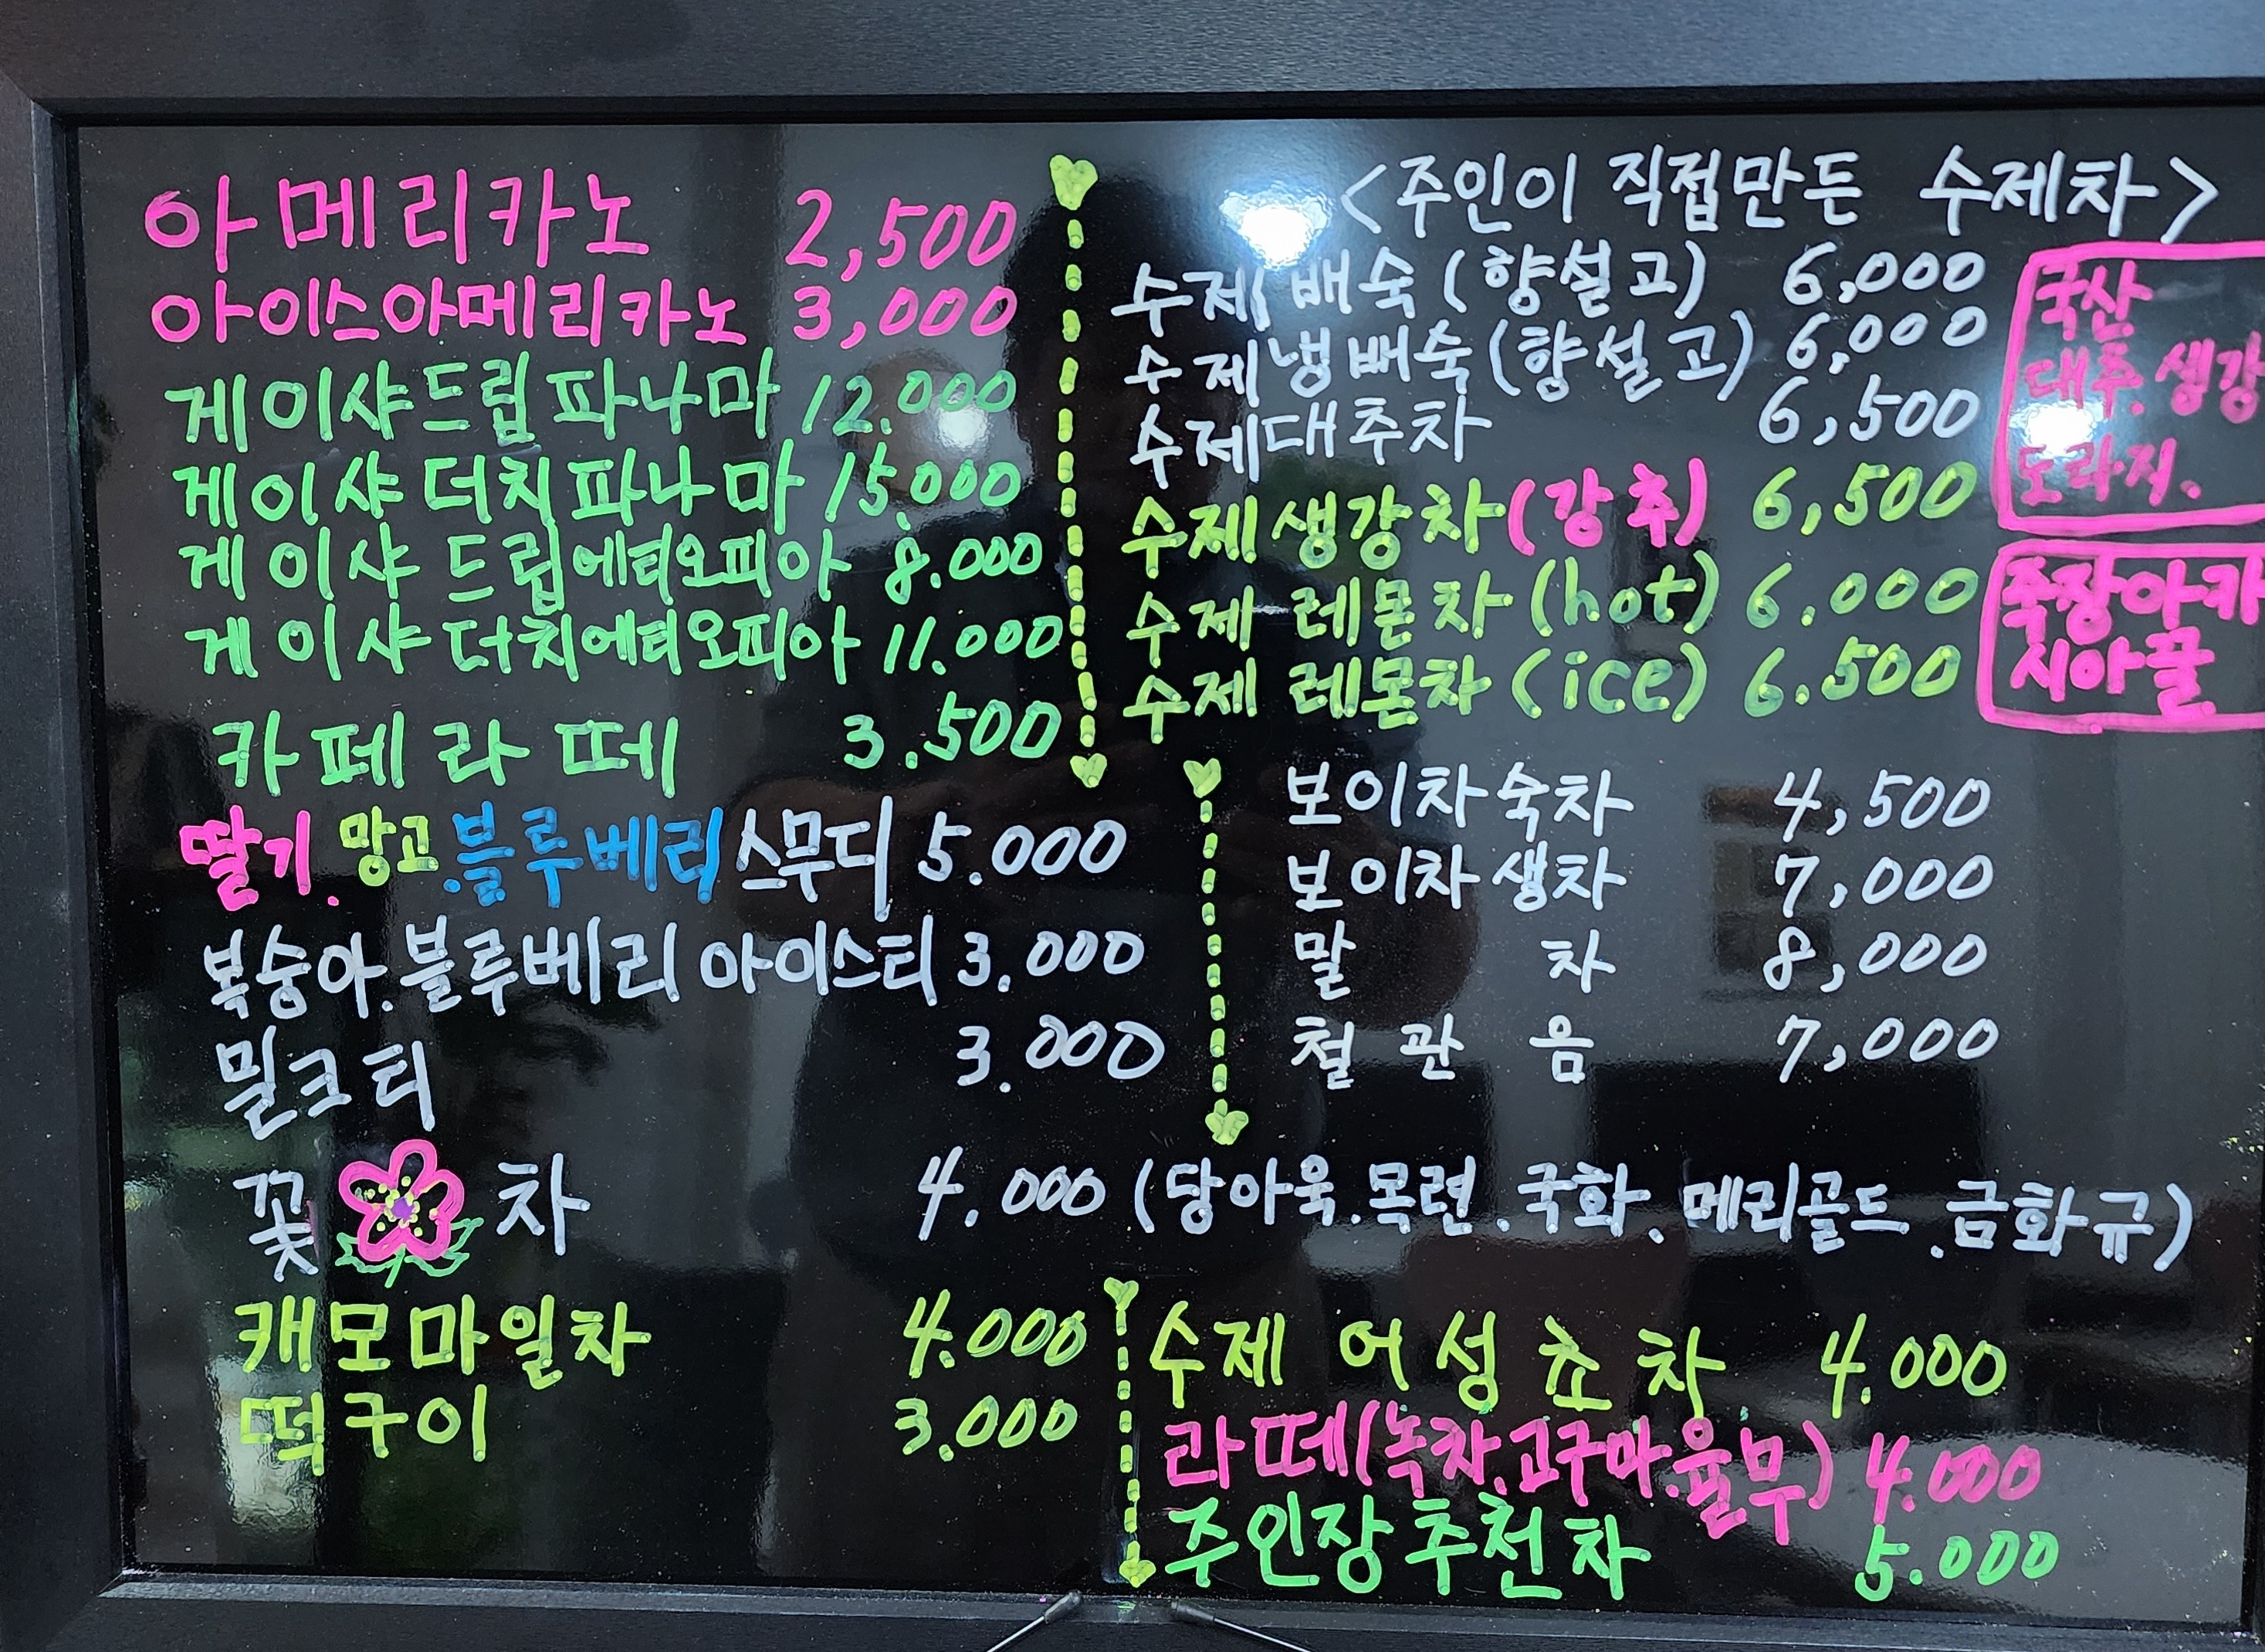 아메리카노 2,500
아이스아메리카노 3,000
게이샤드립파나마 12.000
게이샤더치파나마 15.000
게이샤 드립에티오피아 8.000
게이샤 더치에티오피아 11.000
카페라떼 3.500
딸기.망고.블루베리스무디 5.000
복숭아.블루베리아이스티 3.000
밀크티 3.000
꽃 차 4.000 (당아욱.목련.국화.메리골드.금화규)
캐모마일차 4.000
떡구이 3.000
<주인이 직접만든 수제차>
수제배숙(향설고) 6,000
수제냉배숙(향설고) 6,000
수제대추차 6,500
수제생강차(강추) 6,500
수제 레몬차(hot) 6.000
수제 레몬차(ice) 6.500
국산
대추.생강
도라지.
죽장아카
시아꿀
보이차숙차 4,500
보이차생차 7,000
말 차 8,000
철관음 7,000
수제 어성초차 4.000
라떼(녹차.고구마.율무) 4.000
주인장추천차 5.000